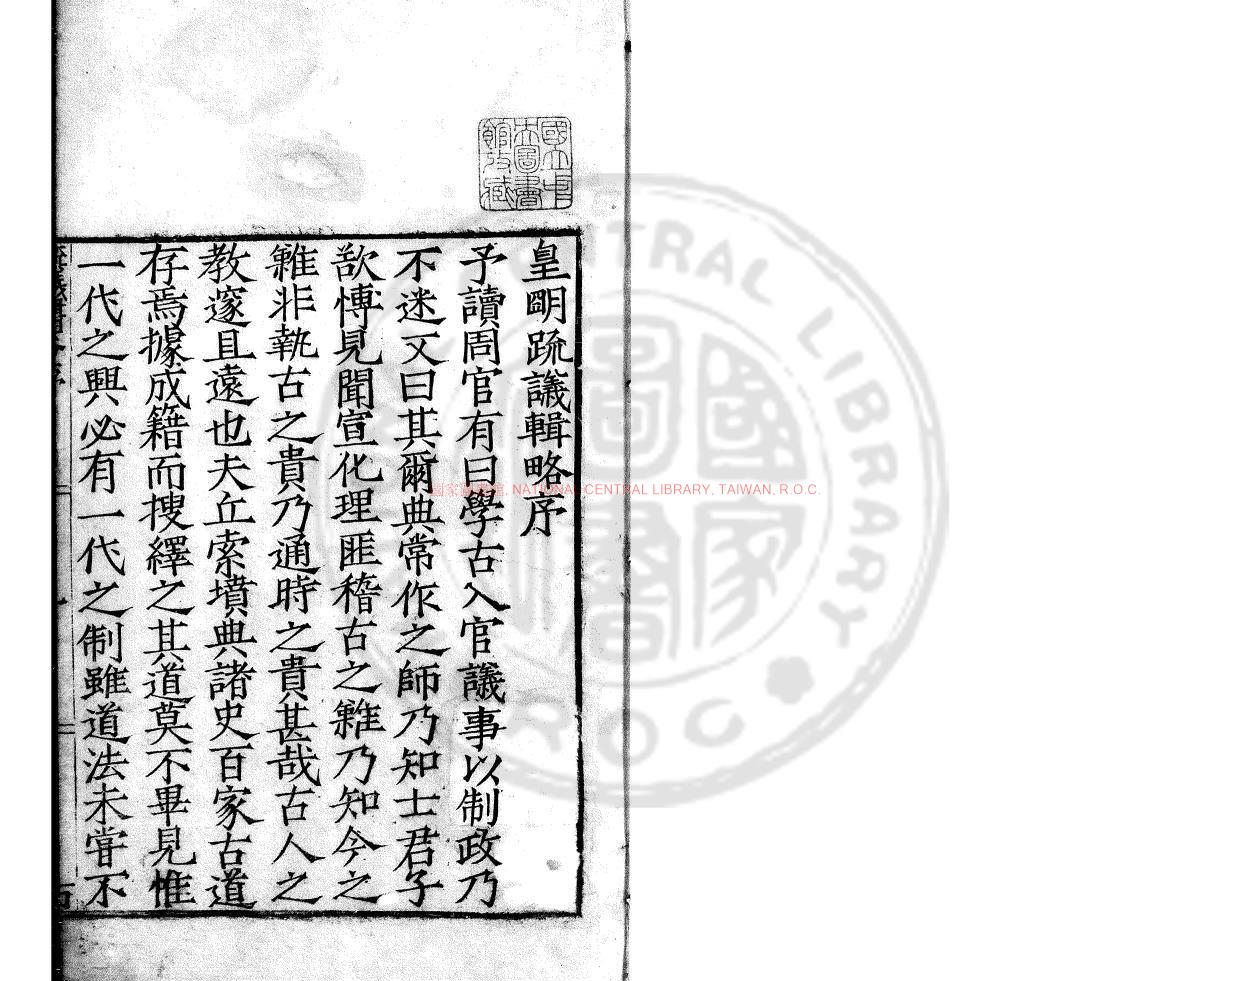 皇明疏議輯略序
予讀周官有曰學古入官議事以制政乃
不迷又曰其爾典常作之師乃知士君子
欲愽見聞宣化理匪稽古之難乃知今之
難非執古之貴乃通時之貴甚哉古人之
教邃且遠也夫丘索墳典諸史百家古道
存焉據成籍而搜繹之其道莫不畢見惟
一代之興必有一代之制雖道法未嘗不
國立中央圖書館收藏
國家圖書館, NATIONAL CENTRAL LIBRARY, TAIWAN, R.O.C.